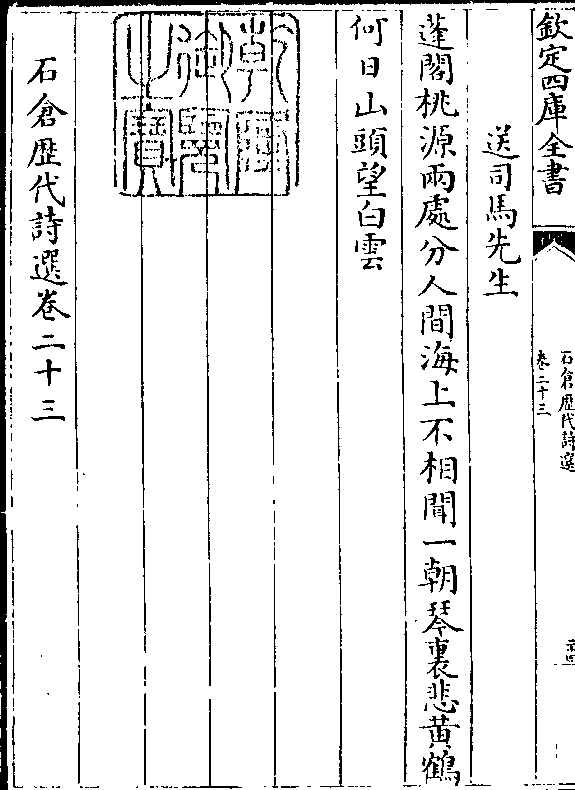 欽定四庫全書
石倉歴代詩選
卷二十三
送司馬先生
蓬閣桃源兩處分人間海上不相聞一朝琴裏悲黄鶴
何日山頭望白雲
乾隆御覽之寶
石倉歴代詩選卷二十三